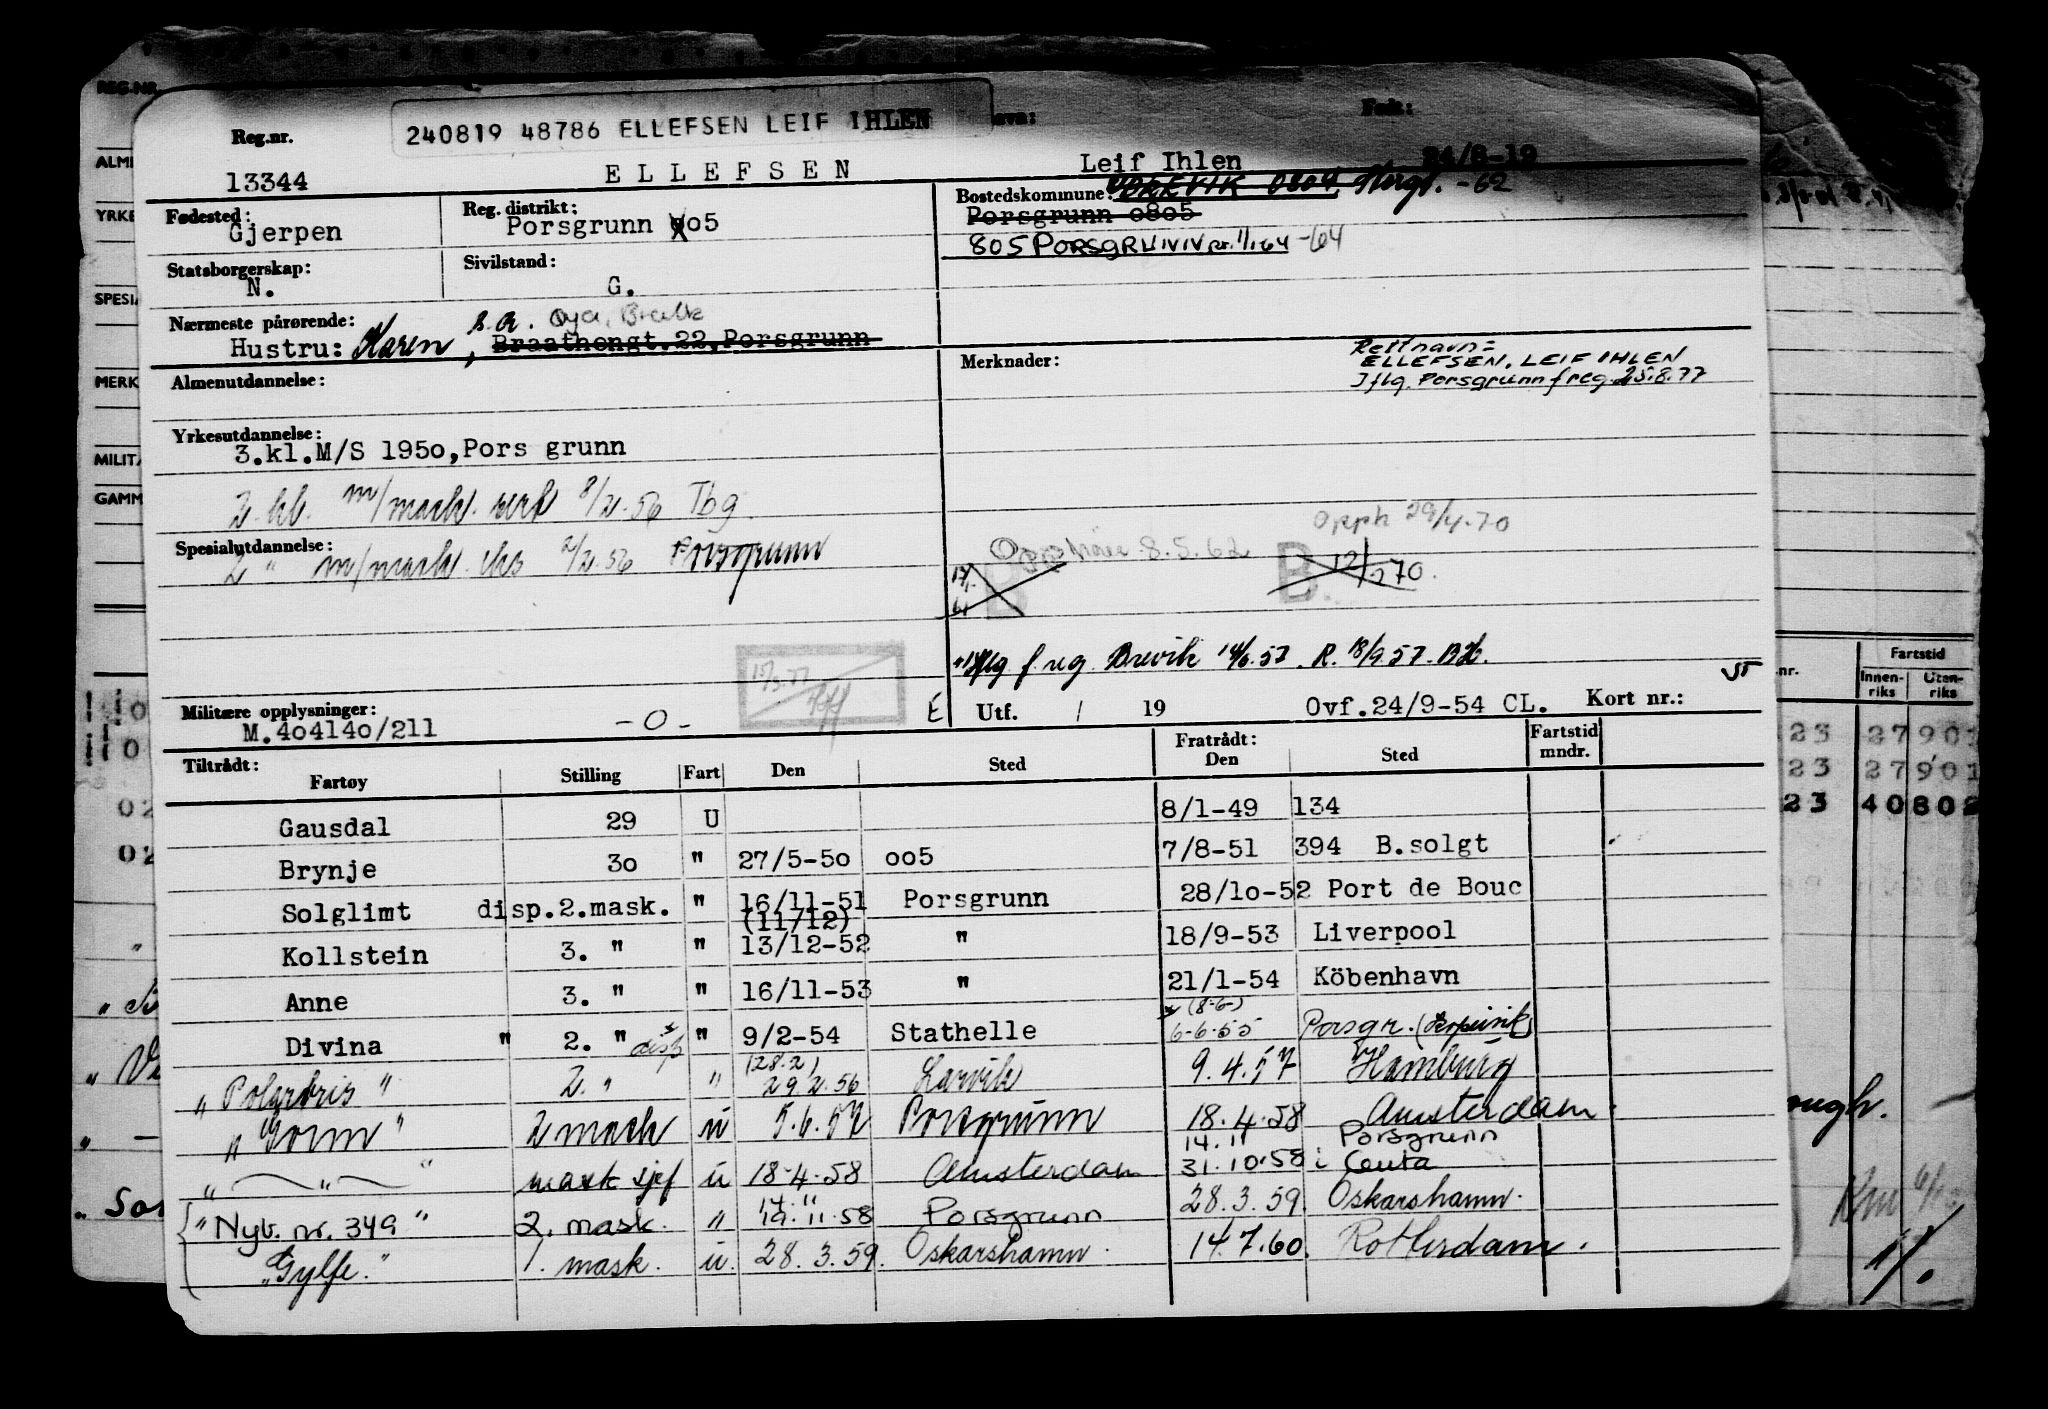 240819 48786 ELLEFSEN LEIF IHLEN
Reg.nr. Født:
13344 ELLEFSEN Leif Ihlen 24/8-19
Fødested: Reg. distrikt: Bostedskommune: BREVIK 0804 -62
Gjerpen Porsgrunn 005 Porsgrunn 0805
805 PORSGRUNN 1/1 64 -64
Statsborgerskap: Sivilstand:
N. G.
Nærmeste pårørende: Øya, Brevik
Hustru: Karen, Braathengt.22,Porsgrunn
Merknader: Rett navn=
ELLEFSEN, LEIF IHLEN
Iflg. Porsgrunn f reg. 25.8.77
Almenutdannelse:
Yrkesutdannelse:
3.kl.M/S 1950,Pors grunn
2. kl. m/mask. 8/2.56 Tbg.
Spesialutdannelse:
2 " m/mask. eks 2/2.56 Porsgrunn
Opph 29/4.70
8.5.62
B B 12/ 70.
f. reg. Brevik 14/6.57. R. 18/9.57.
Militære opplysninger:
M.404140/211 -0- É Utf. / 19 Ovf.24/9-54 CL. Kort nr.:
Tiltrådt: Fratrådt: Fartstid
Fartøy Stilling Fart Den Sted Den Sted mndr.
Gausdal 29 U 8/1-49 134
Brynje 30 " 27/5-50 005 7/8-51 394 B.solgt
Solglimt disp.2.mask. " 16/11-51 Porsgrunn 28/10-52 Port de Bouc
(11/12)
Kollstein 3. " " 13/12-52 " 18/9-53 Liverpool
Anne 3. " " 16/11-53 " 21/1-54 Köbenhavn
(8-6-)
Divina " 2. " disp " 9/2-54 Stathelle 6-6-55 Porsgr.
(28.2)
"Polarbris" 2. " " 29.2.56 Larvik 9.4.57 Hamburg
"Gorm" 2 mask u 5.6.57 Porsgrunn 18.4.58 Amsterdam.
14.11 Porsgrunn
" — " — " mask sjef u 18.4.58 Amsterdam 31.10.58 i Ceuta
14.11
"Nyb. nr. 349" 2. mask. " 19.11.58 Porsgrunn 28.3.59 Oskarshamn.
"Gylfe." 1. mask. u. 28.3.59. Oskarshamn. 14.7.60. Rotterdam.
REG.NR.
ALM
YRKE
SPESI
MERK
MILIT
GAMM
nr. Fartstid
Innen-riks Uten-riks
23 27901
23 27901
23 40802